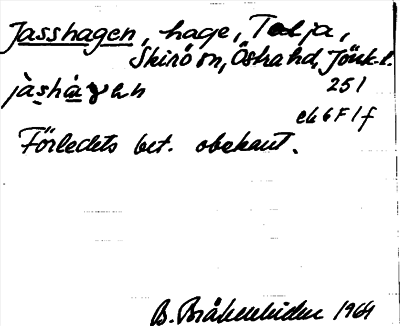 Jasshagen, hage, Telja,
Skirö sn, Östra hd, Jönk. l.
jàshá̱gen 251
ek 6 F 1 f
Förledets bet. obekant.
B. 1964